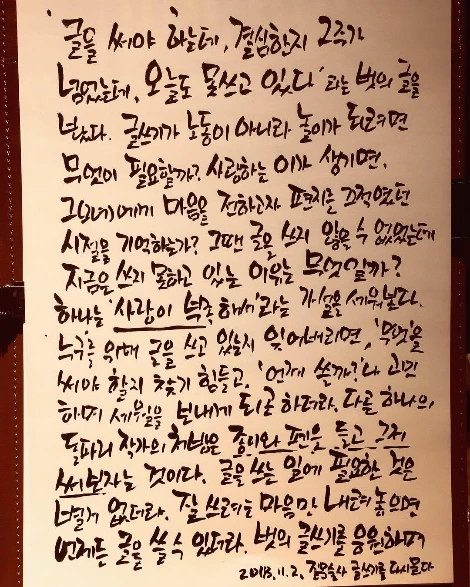 '글을 써야 하는데, 결심한지 2주가
넘었는데, 오늘도 못쓰고 있다' 라는 벗의 글을
봤다. 글쓰기가 노동이 아니라 놀이가 되려면
무엇이 필요할까? 사랑하는 이가 생기면,
그(녀)에게 마음을 전하고자 편지를 끄적였던
시절을 기억하는가? 그땐 글을 쓰지 않을 수 없었는데
지금은 쓰지 못하고 있는 이유는 무엇일까?
하나는 '사랑이 부족해서'라는 가설을 세워본다.
누구를 위해 글을 쓰고 있는지 잊어버리면, '무엇'을
써야 할지 찾기 힘들고, '언제 쓸까?'나 고민
하며 세월을 보내게 되곤 하더라. 다른 하나의,
돌파리 작가의 처방은 종이와 펜을 들고 그저
써보자는 것이다. 글을 쓰는 일에 필요한 것은
별게 없더라. 잘 쓰려는 마음만 내려놓으면
언제든 글을 쓸 수 있더라. 벗의 글쓰기를 응원하며
2018.11.2. 글쓰기를 다시 묻다